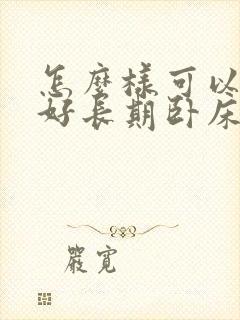 怎麼樣可以
好長期卧床
嚴寬